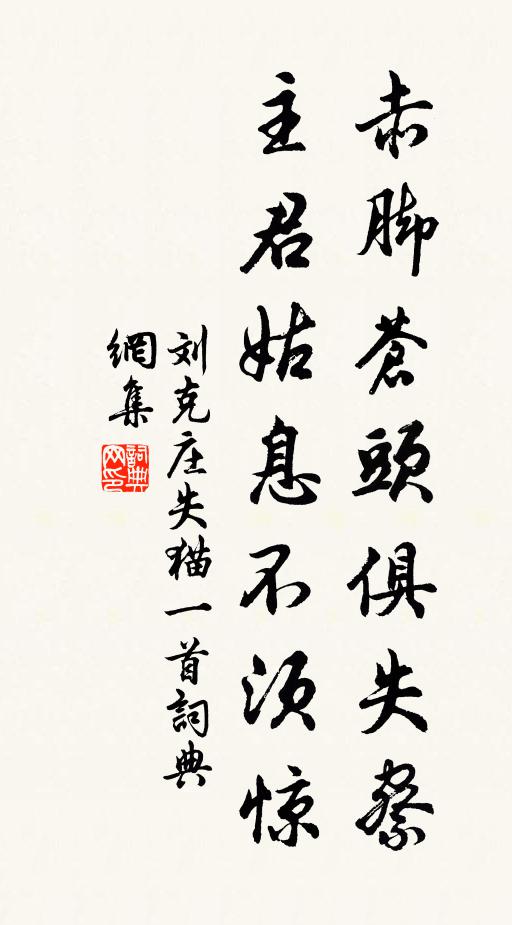 赤脚蒼頭俱失察
主君姑息不须惊
刘克庄失猫一首詞典
網集
詞典网印